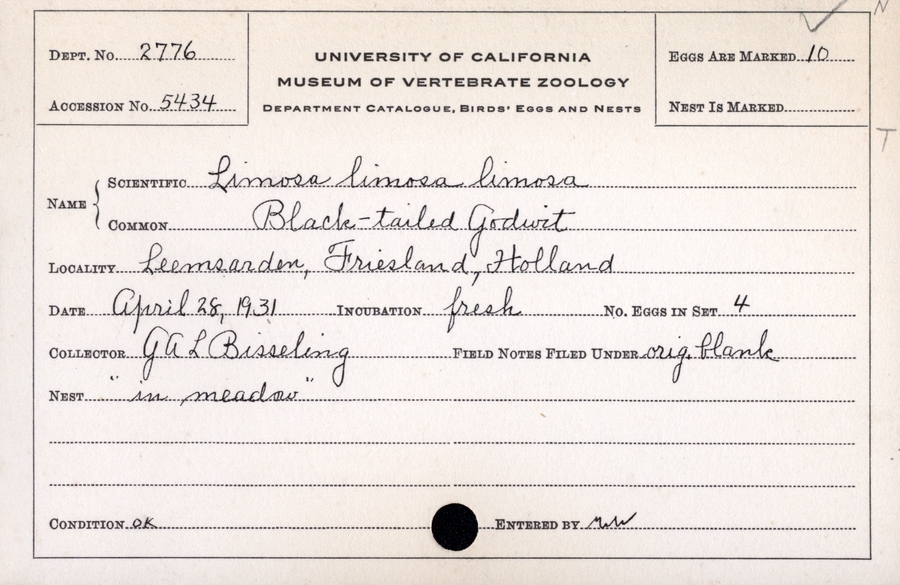 N
DEPT. NO. 2776
UNIVERSITY OF CALIFORNIA
EGGS ARE MARKED 10
MUSEUM OF VERTEBRATE ZOOLOGY
ACCESSION NO. 5434
DEPARTMENT CATALOGUE, BIRDS' EGGS AND NESTS
NEST IS MARKED
T
NAME
SCIENTIFIC Limosa limosa limosa
COMMON Black-tailed Godwit
LOCALITY Leemsarden, Friesland, Holland
DATE April 28, 1931 INCUBATION fresh NO. EGGS IN SET 4
COLLECTOR G A L Bisseling FIELD NOTES FILED UNDER orig. blank
NEST "in meadow"
CONDITION OK ENTERED BY